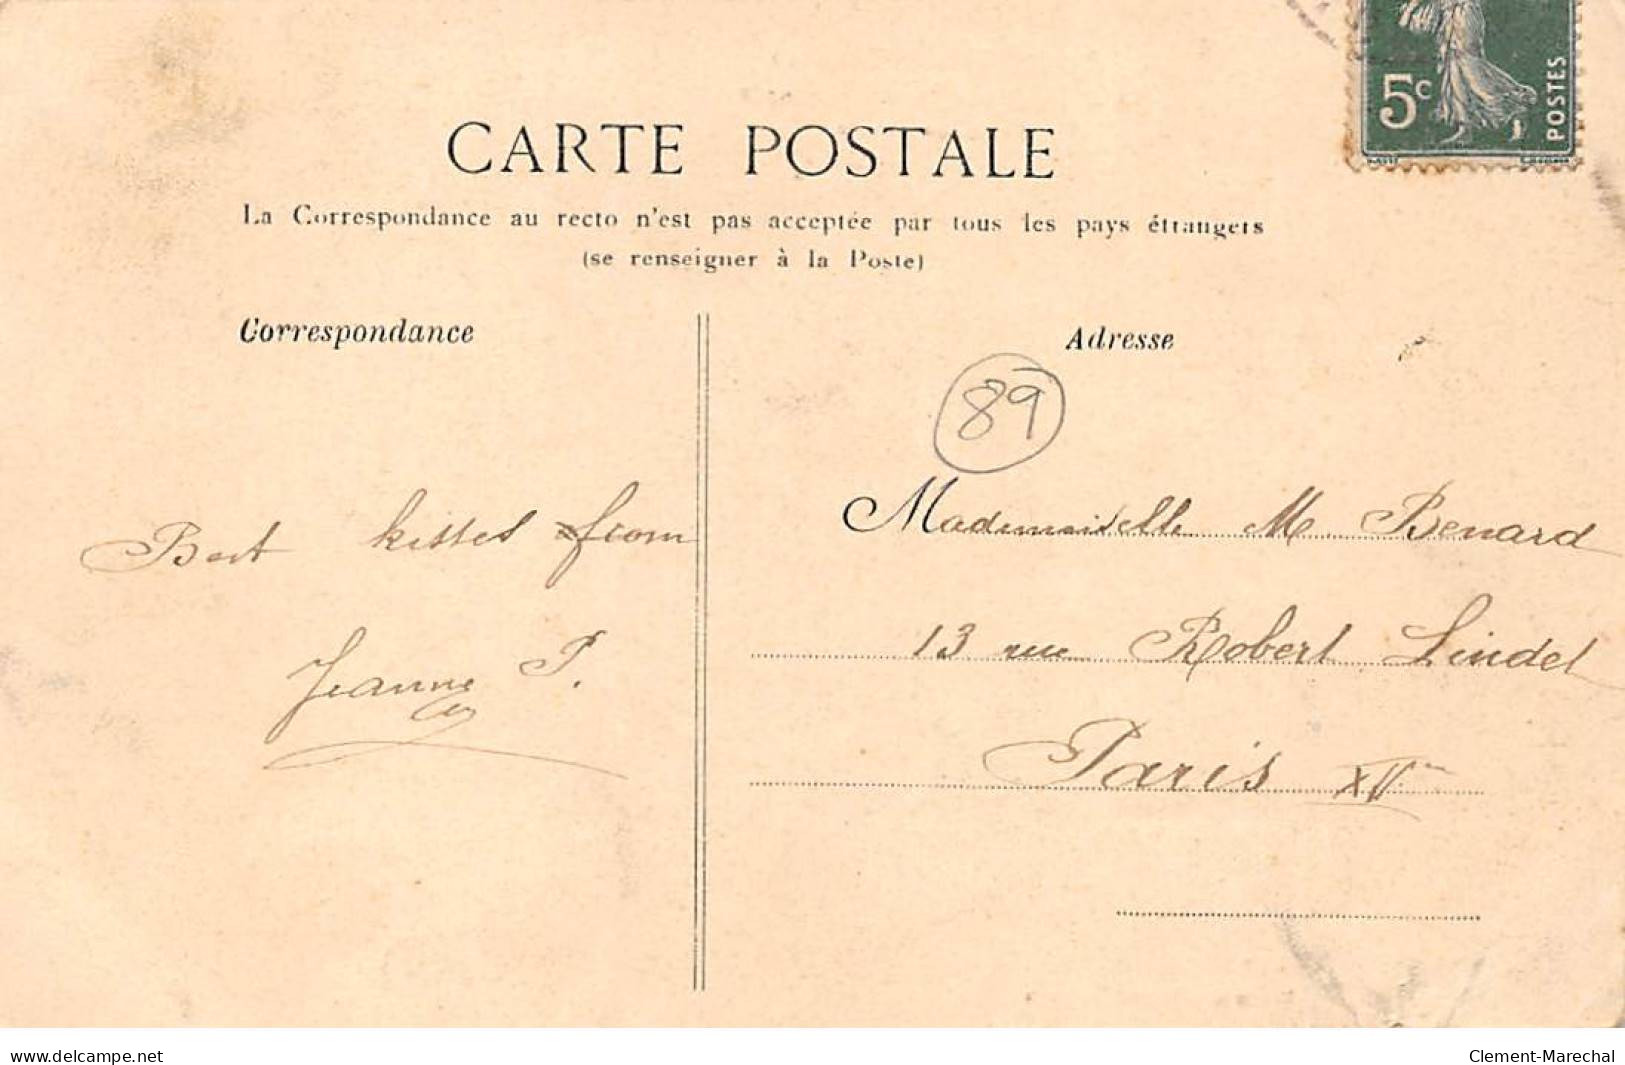 5c
POSTES
CARTE POSTALE
La Correspondance au recto n'est pas acceptée par tous les pays étrangers
(se renseigner à la Poste)
Correspondance
Adresse
89
Best kisses from
Jeanne P.
Mademoiselle M. Benard
13 rue Robert Lindet
Paris XVme
www.delcampe.net
Clement-Marechal